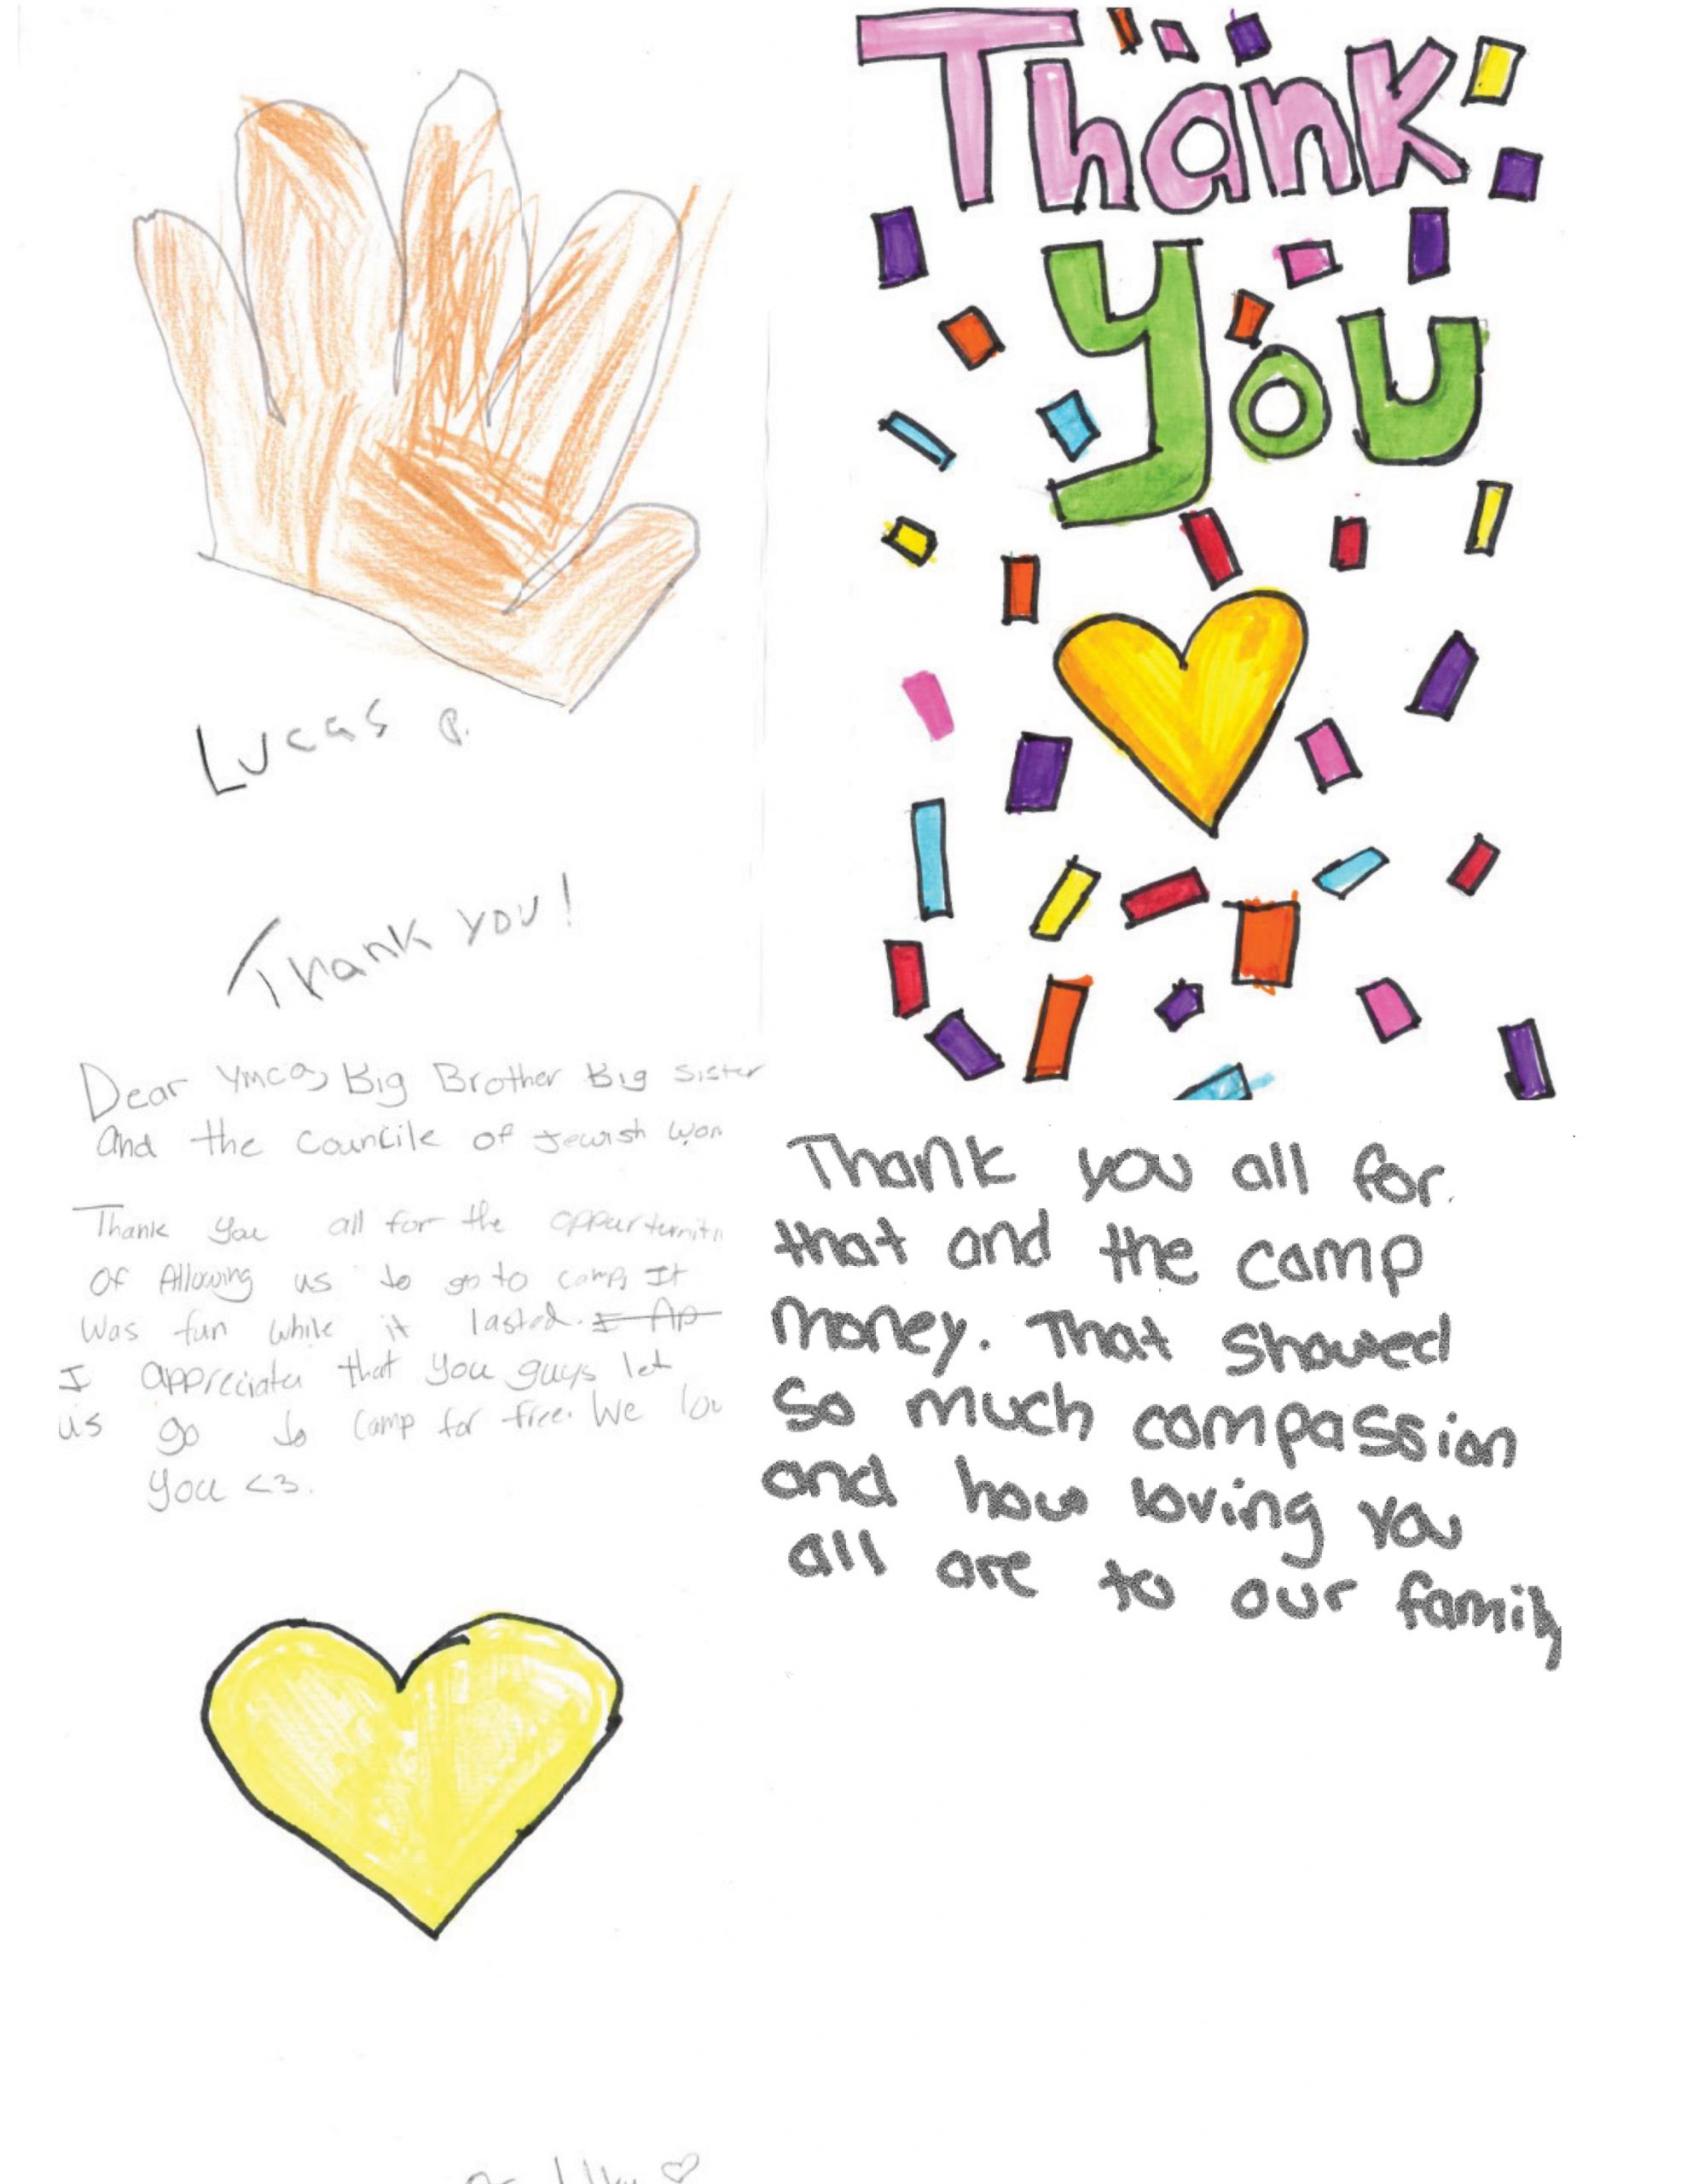 Lucas P.
Thank you!
Dear Ymca, Big Brother Big Sister
and the councile of Jewish wom
Thank you all for the oppurtuniti
Of Allowing us to go to camp, It
was fun while it lasted. I Ap
I appreciate that you guys let
us go to camp for free. We lov
you <3.
Thank
you
Thank you all for
that and the camp
money. That showed
so much compassion
and how loving you
all are to our family